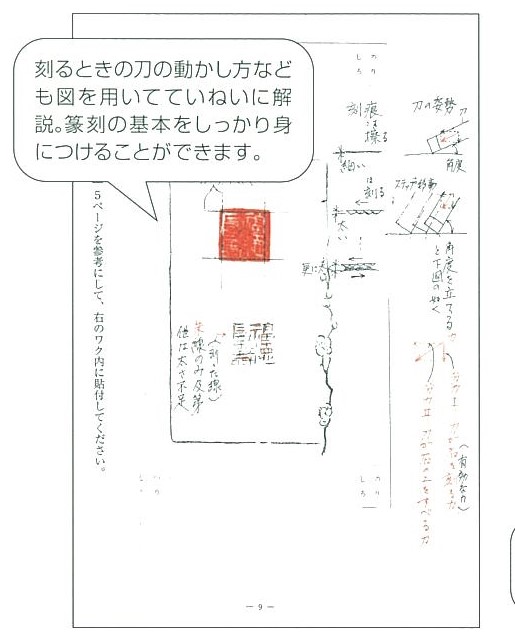 刻るときの刀の動かし方など
も図を用いてていねいに解
説。篆刻の基本をしっかり身
につけることができます。
のり
しろ
刀の姿勢
刀
角度
刻痕は擦る
細い
は刻る
太い
ステップ移動
角度を立てる
と下図の如く
(有効な力)
5ページを参考にして、右のワク内に貼付してください。
(刻った線)
朱線のみ及第
他は太さ不足
のり
しろ
のり
しろ
— 9 —